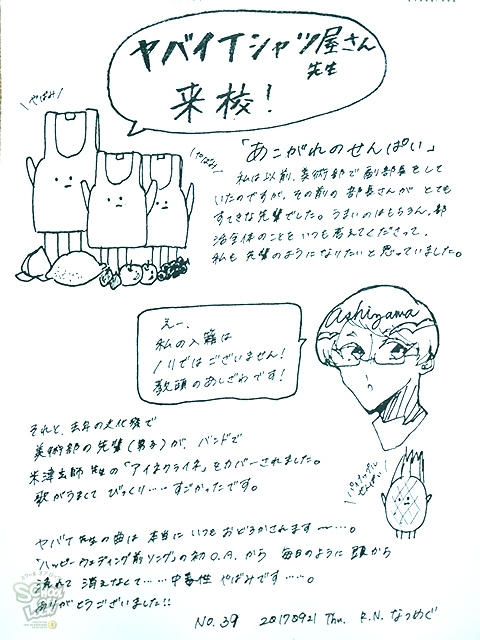 ヤバイTシャツ屋さん
先生
来校!
\やばみ/
\やばみ/
「あこがれのせんぱい」
私は以前、美術部で副部長をして
いたのですが、その前の部長さんがとても
すてきな先輩でした。うまいのはもちろん、部
活全体のことをいつも考えてくださって、
私も先輩のようになりたいと思っていました。
えー、
私の入籍は
ノリではございません!
教頭のあしざわです!
ashizawa
それと、去年の文化祭で
美術部の先輩(男子)が、バンドで
米津玄師先生の「アイネクライネ」をカバーされました。
歌がうまくて びっくり……すごかったです。
パイナップル
せんぱい!
ヤバT先生の曲は本当にいつもおどろかされます〜〜。
「ハッピーウェディング前ソング」の初O.A.から 毎日のように頭から
流れて 消えなくて……中毒性 やばみです……。
ありがとうございました!!
SCHOOL
No.39 20170921 Thu. R.N.なつめぐ